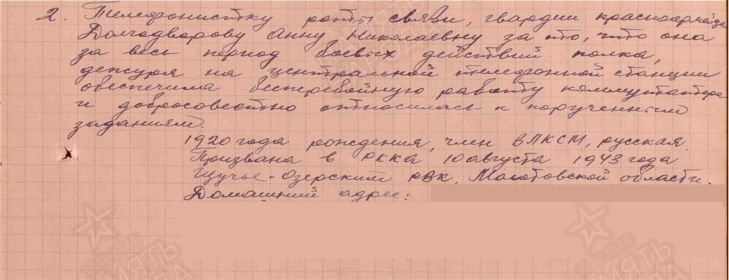 2. Телефонистку роты связи, гвардии красноармейца
Долгодворову Анну Николаевну за то, что она
за весь период боевых действий полка,
дежуря на центральной телефонной станции
обеспечила бесперебойную работу коммутатора
и добросовестно относилась к порученным
заданиям.
1920 года рождения, член ВЛКСМ, русская.
Призвана в РККА 10 августа 1943 года
Щучье-Озерским РВК, Молотовской области.
Домашний адрес: